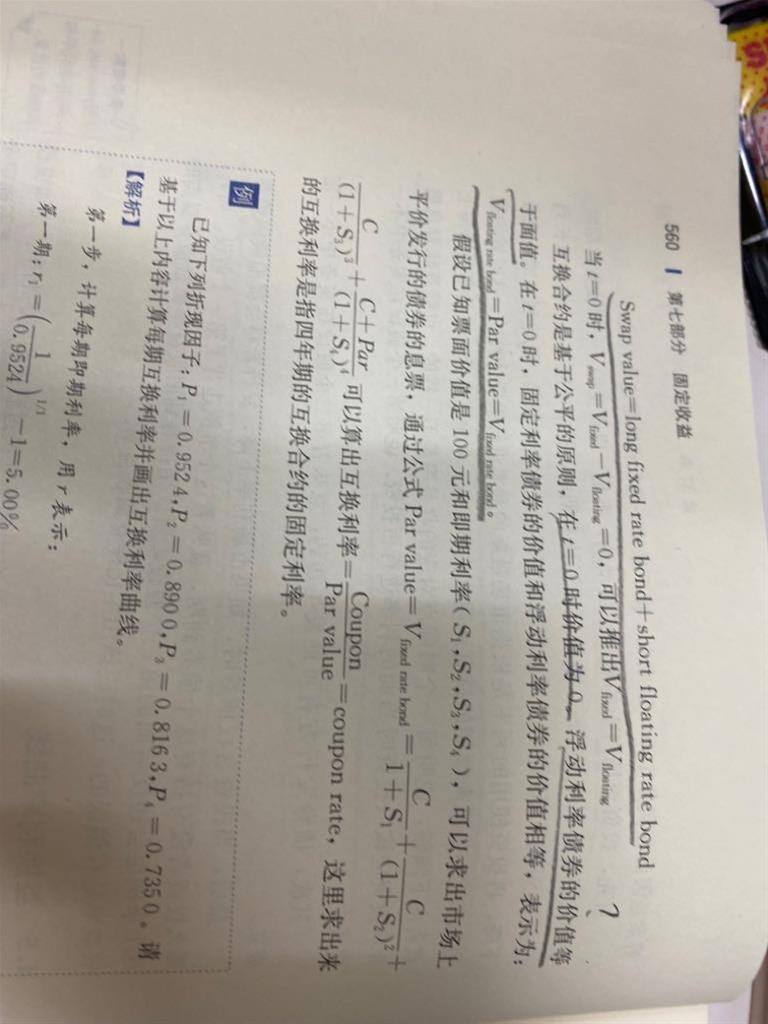 560 第七部分 固定收益
Swap value=long fixed rate bond+short floating rate bond
当 t=0 时，V swap=V fixed-V floating=0，可以推出V fixed=V floating
?
互换合约是基于公平的原则，在 t=0 时价值为 0。浮动利率债券的价值等
于面值。在 t=0 时，固定利率债券的价值和浮动利率债券的价值相等，表示为：
V floating rate bond=Par value=V fixed rate bond。
假设已知票面价值是 100 元和即期利率(S₁,S₂,S₃,S₄)，可以求出市场上
平价发行的债券的息票，通过公式 Par value=V fixed rate bond=C/(1+S₁)+C/(1+S₂)²+
C/(1+S₃)³+(C+Par)/(1+S₄)⁴ 可以算出互换利率=Coupon/Par value=coupon rate，这里求出来
的互换利率是指四年期的互换合约的固定利率。
例
已知下列折现因子：P₁=0.9524,P₂=0.8900,P₃=0.8163,P₄=0.7350。请
基于以上内容计算每期互换利率并画出互换利率曲线。
【解析】
第一步，计算每期即期利率，用 r 表示：
第一期：r₁=(1/0.9524)^1/1-1=5.00%